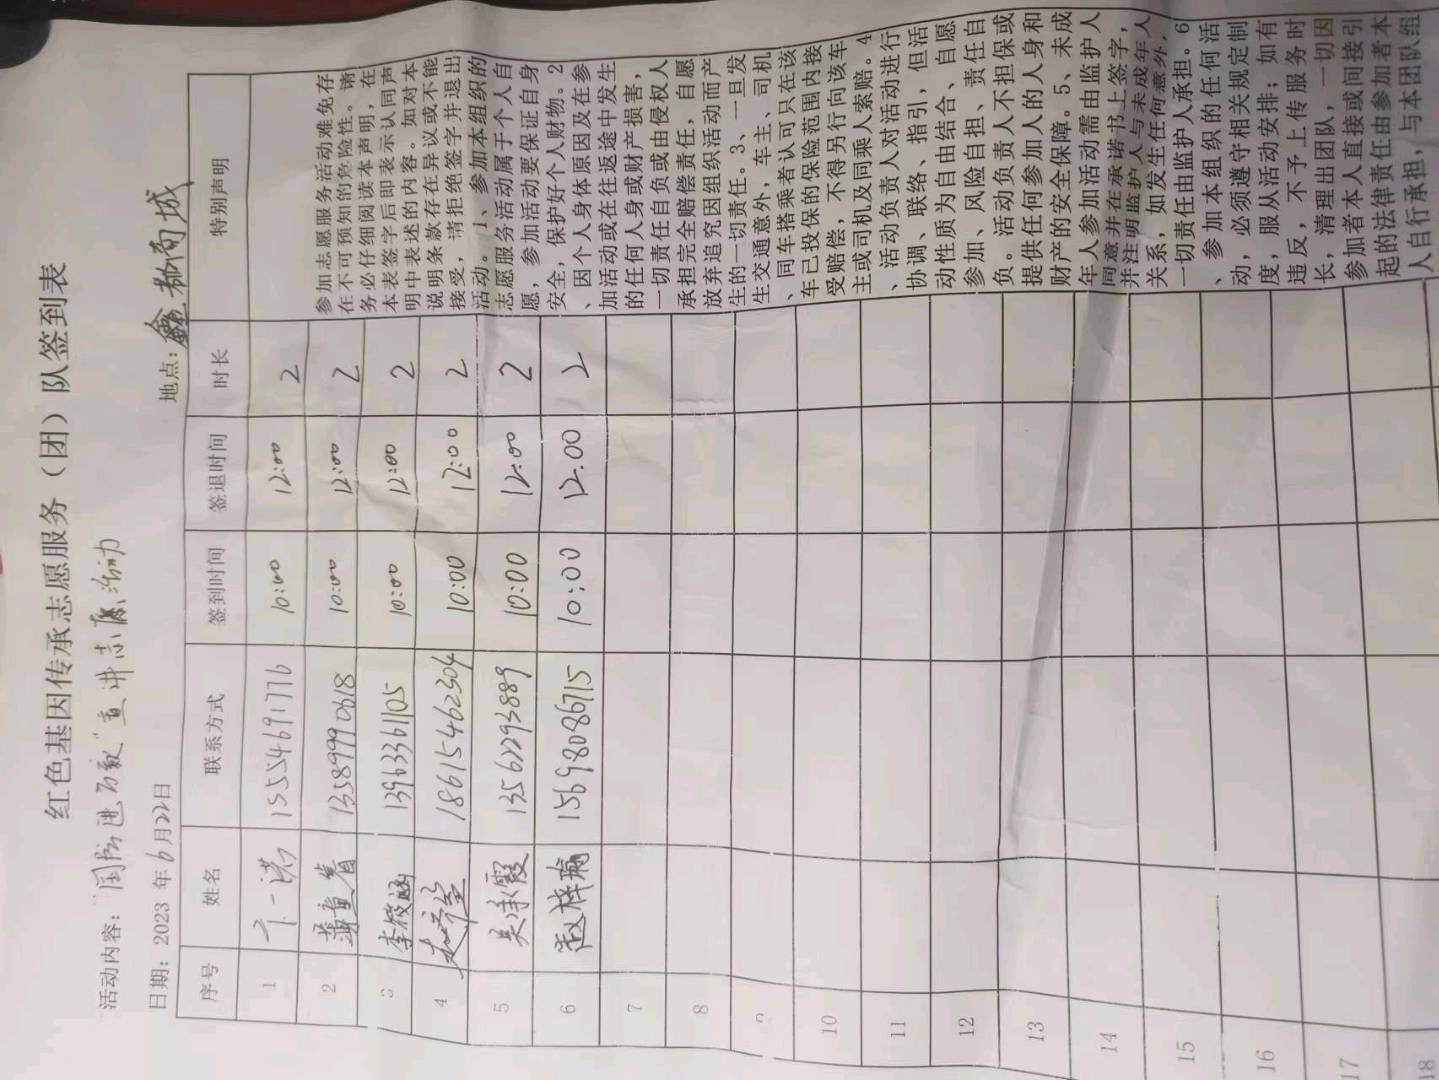 红色基因传承志愿服务（团）队签到表
活动内容："国防进万家"宣讲志愿活动
日期：2023 年 6 月 22 日 地点：鑫都商城
序号 姓名 联系方式 签到时间 签退时间 时长 特别声明
1 一诺 15554691776 10:00 12:00 2
2 13589990618 10:00 12:00 2
3 李筱涵 13963361105 10:00 12:00 2
4 18615462304 10:00 12:00 2
5 吴承霞 13562293889 10:00 12:00 2
6 赵梓瑜 15698086715 10:00 12.00 2
7
8
9
10
11
12
13
14
15
16
17
18
参加志愿服务活动难免存
在不可预知的危险性。请
务必仔细阅读本声明，在
本表签字后即表示认同声
明中表述的内容。如对本
说明条款存在异议或不能
接受，请拒绝签字并退出
活动。1、参加本组织的
志愿服务活动属于个人自
愿，参加活动要保证自身
安全，保护好个人财物。2
、因个人身体原因及在参
加活动或在往返途中发生
的任何人身或财产损害，
一切责任自负或由侵权人
承担完全赔偿责任，自愿
放弃追究因组织活动而产
生的一切责任。3、一旦发
生交通意外，车主、司机
、同车搭乘者认可只在该
车已投保的保险范围内接
受赔偿，不得另行向该车
主或司机及同乘人索赔。4
、活动负责人对活动进行
协调、联络、指引，但活
动性质为自由结合、自愿
参加、风险自担、责任自
负。活动负责人不担保或
提供任何参加人的人身和
财产的安全保障。5、未成
年人参加活动需由监护人
同意并在承诺书上签字，
并注明监护人与未成年人
关系，如发生任何意外，
一切责任由监护人承担。6
、参加本组织的任何活
动，必须遵守相关规定制
度，服从活动安排；如有
违反，不予上传服务时
长，清理出团队，一切因
参加者本人直接或间接引
起的法律责任由参加者本
人自行承担，与本团队组